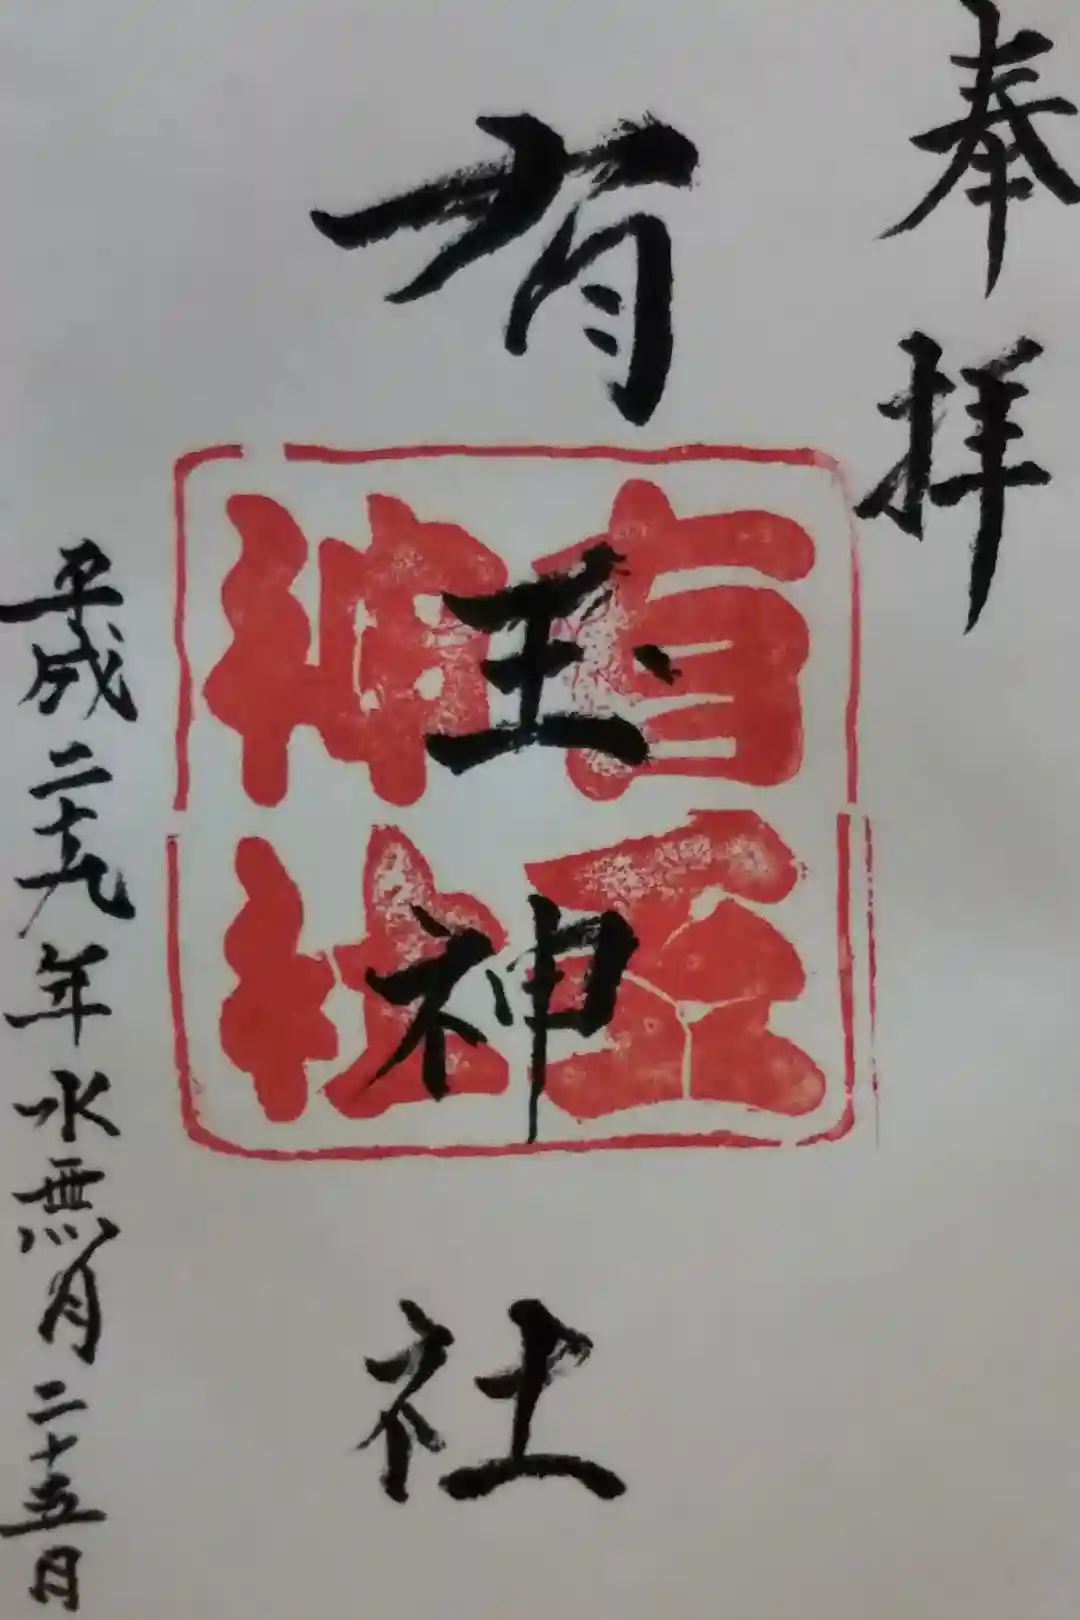 奉拝
有玉神社
有玉神社
平成二十九年水無月二十五日